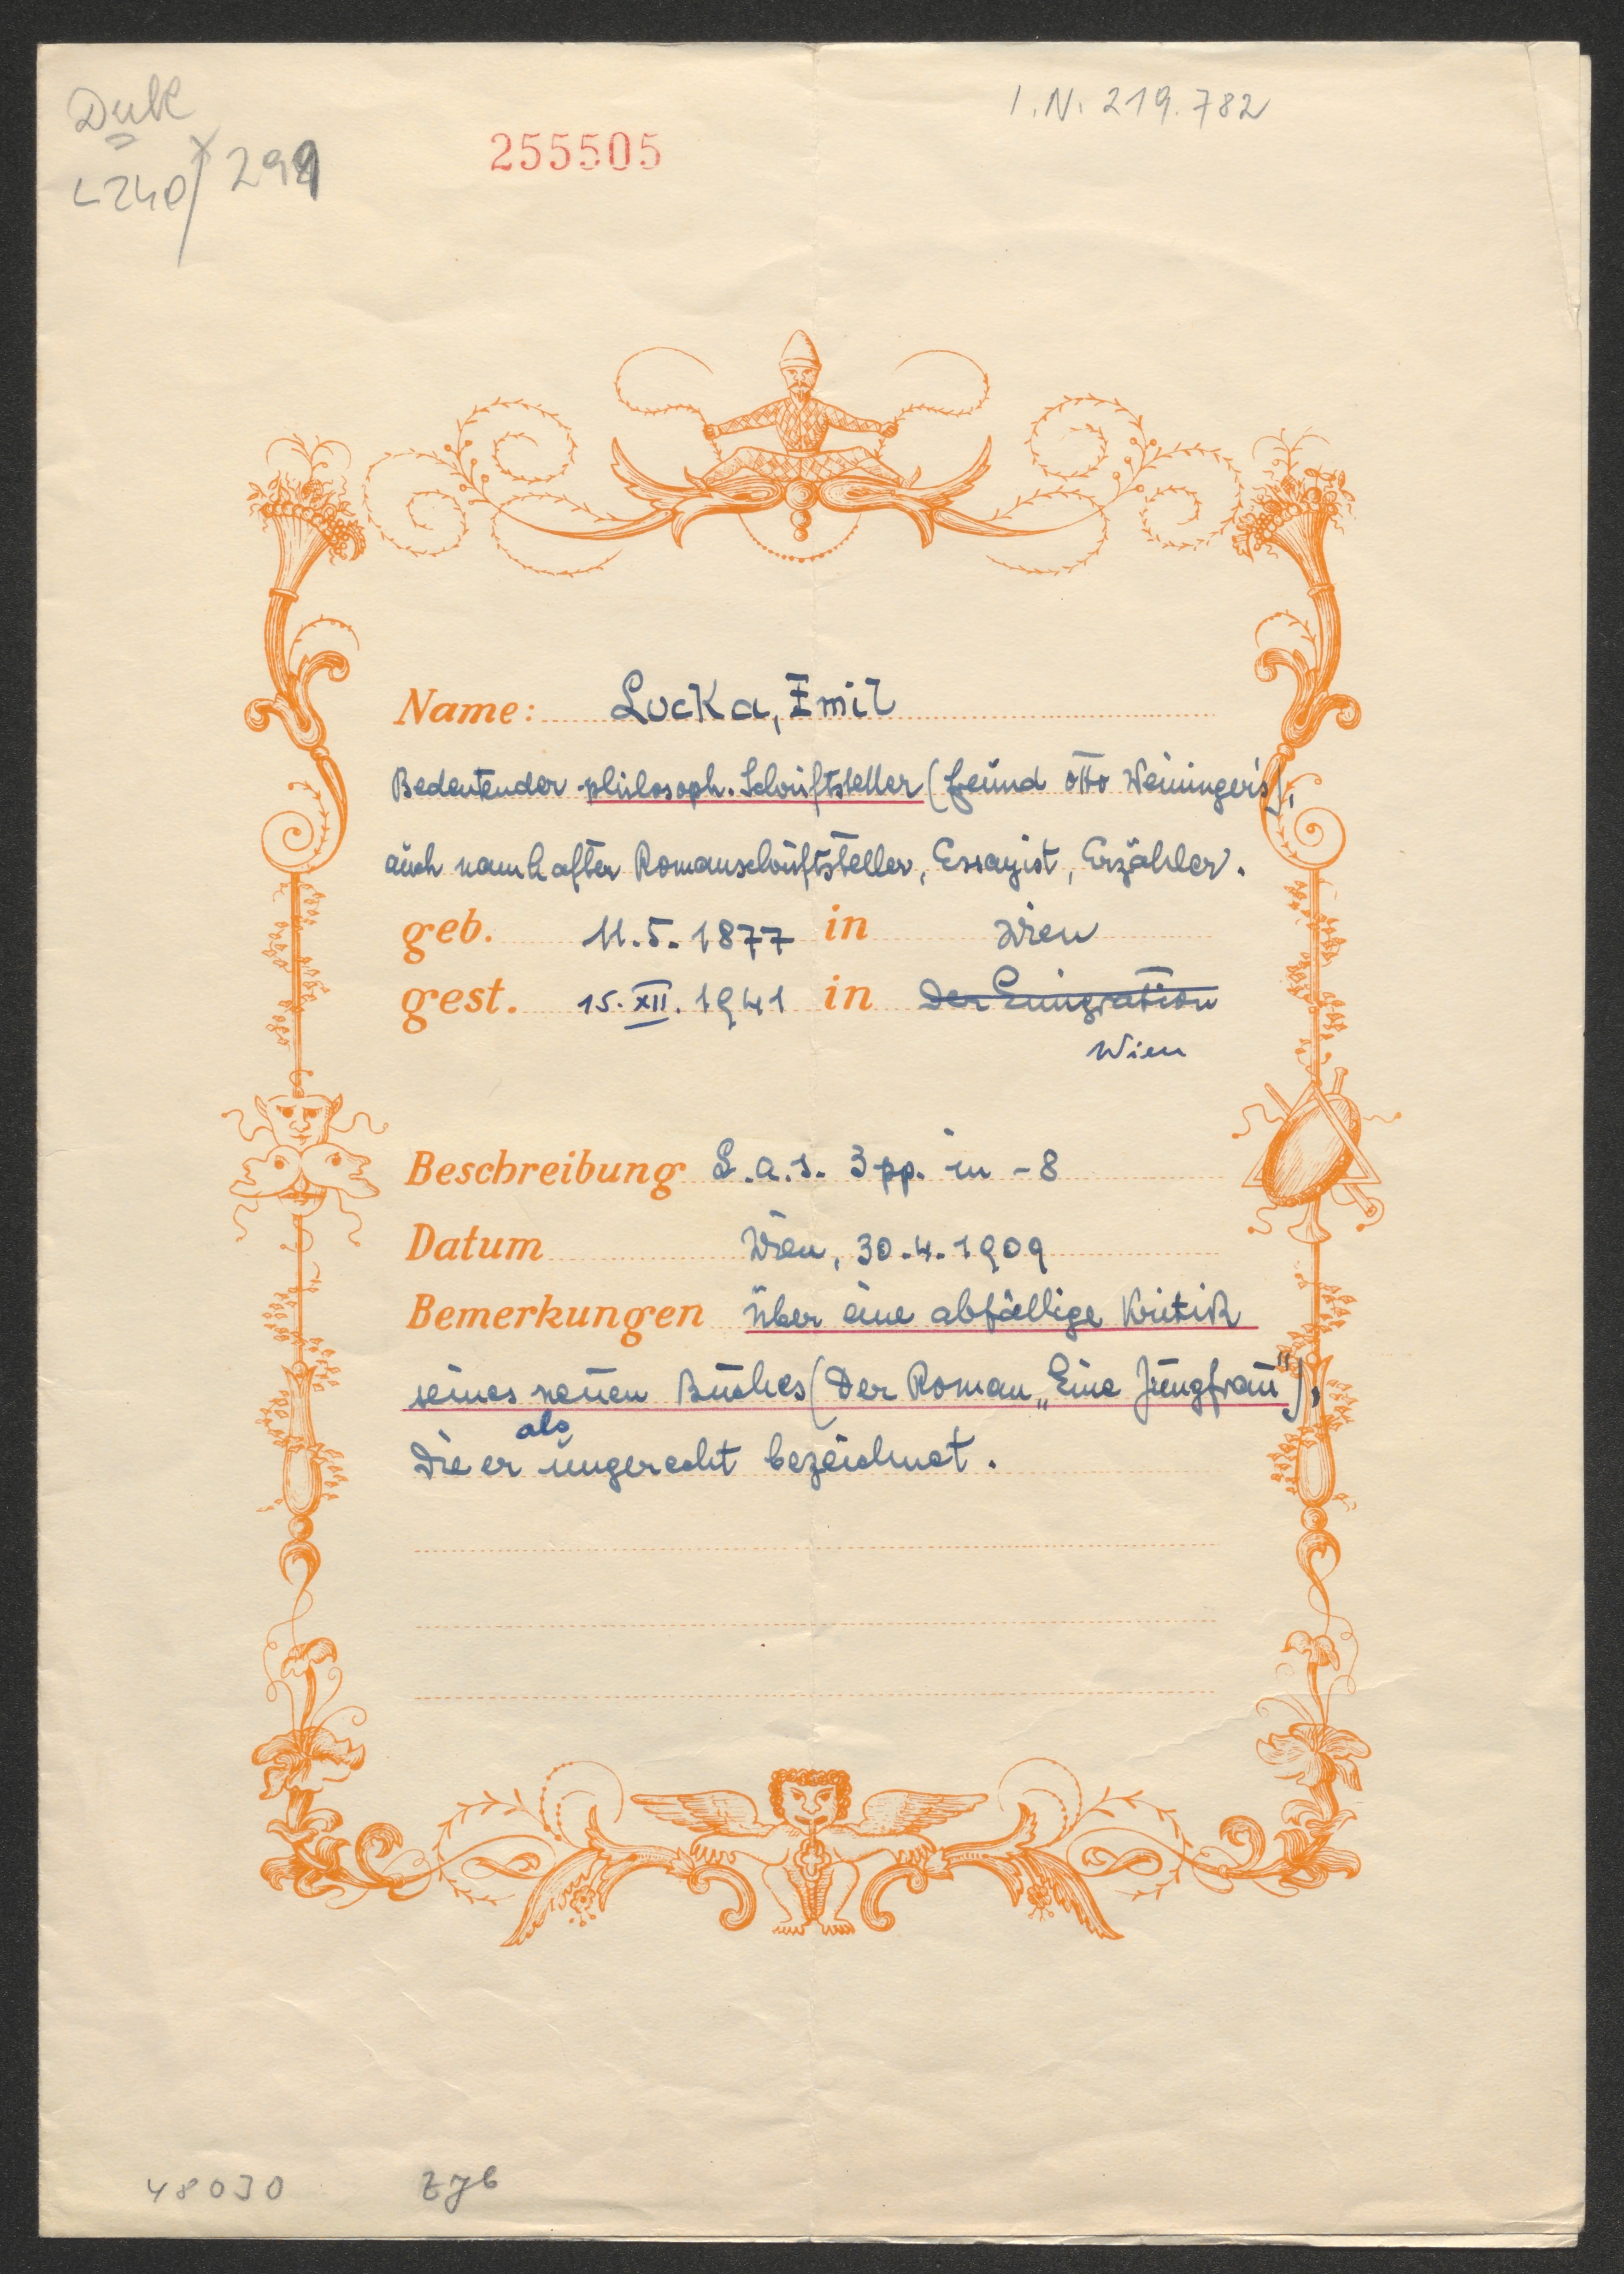 Dubl
I.N. 219.782
255505
L240/299
Name: Lucka, Emil
Bedeutender philosoph. Schriftsteller (Freund Otto Weininger's),
auch namhafter Romanschriftsteller, Essayist, Erzähler.
geb. 11.5.1877 in Wien
gest. 15.XII.1941 in der Emigration
Wien
Beschreibung L.a.s. 3 pp. in -8
Datum Wien, 30.4.1909
Bemerkungen über eine abfällige Kritik
seines neuen Buches (Der Roman „Eine Jungfrau"),
als
die er ungerecht bezeichnet.
48030